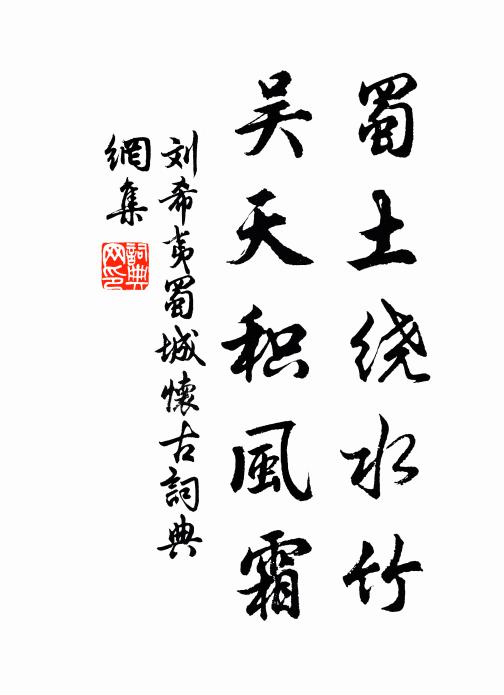 蜀土绕水竹
吴天积風霜
刘希夷蜀城懷古詞典
網集
詞典
网印